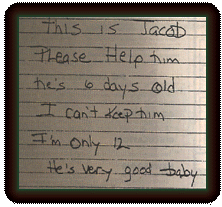 This is Jacob
Please Help him
he's 6 days old.
I can't keep him
I'm only 12
He's very good baby